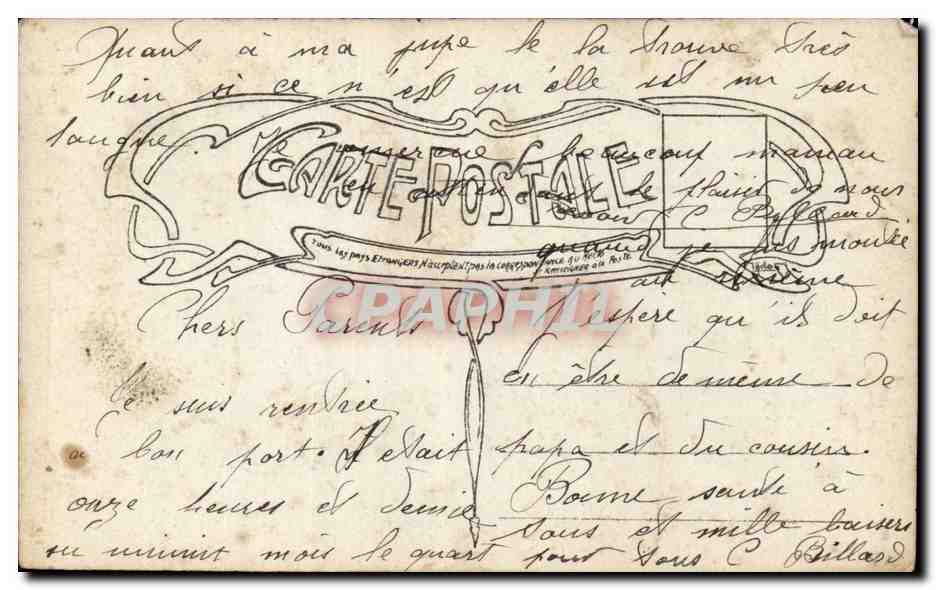 Quant à ma jupe je la trouve très
bien si ce n'est qu'elle est un peu
longue. Je remercie beaucoup maman
le plaisir de nous
C Billard
quand je suis montée
CARTE POSTALE
Tous les pays Etrangers n'acceptent pas la correspondance au recto
(Se Renseigner à la Poste
CPAPHIL
Chers Parents
Je suis rentrée
à bon port. Il était
onze heures et demie
ou minuit mois le quart
J'espère qu'il doit
en être de même de
papa et du cousin.
Bonne santé à
tous et mille baisers
pour tous C Billard